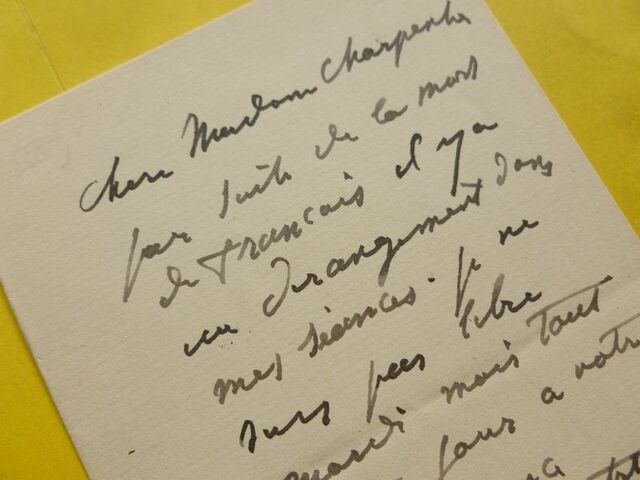 chere Madame Charpentier
par suite de la mort
de francais il y a
un derangement dans
mes séances. je ne
suis pas libre
mardi mais tout
jours a votre